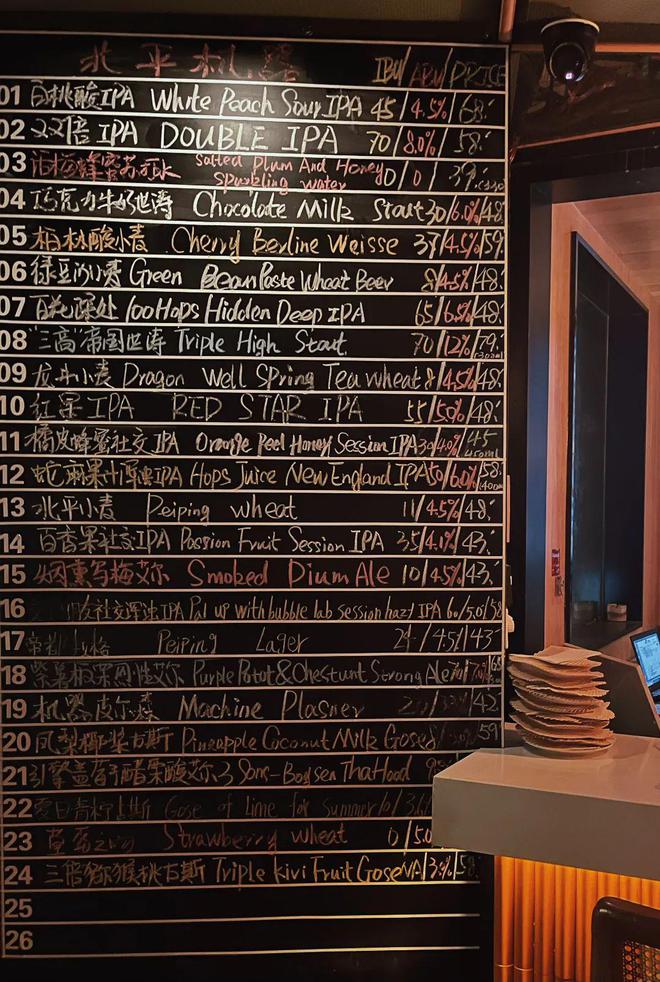 北平机器 IBU/ABV/PRICE
01 白桃酸IPA White Peach Sour IPA 45/4.5%/68.
02 双倍IPA DOUBLE IPA 70/8.0%/58.
03 蜂蜜苏打水 Salted Plum And Honey Sparkling water 0/0/39.
04 巧克力牛奶世涛 Chocolate Milk Stout 30/6.0%/48.
05 酸小麦 Cherry Berline Weisse 37/4.5%/59
06 绿豆沙小麦 Green Bean Paste Wheat Beer 8/4.5%/48.
07 百花深处 100Hops Hidden Deep IPA 65/6.5%/48.
08 "三高"帝国世涛 Triple High Stout 70/12%/79.
09 龙井小麦 Dragon Well Spring Tea wheat 8/4.5%/48.
10 红星IPA RED STAR IPA 55/5.0%/48.
11 橘皮蜂蜜社交IPA Orange Peel Honey Session IPA 30/4.0%/45 450ml
12 蛇麻果汁浑浊IPA Hops Juice New England IPA 50/6.0%/58. 400ml
13 北平小麦 Peiping wheat 11/4.5%/48.
14 百香果社交IPA Passion Fruit Session IPA 35/4.1%/43.
15 烟熏乌梅艾尔 Smoked Dium Ale 10/4.5%/43.
16 社交浑浊IPA Pal up with bubble lab session hazy IPA 60/5.0/58
17 Peiping Lager 4.5%/43
18 紫薯板栗烈性艾尔 Purple Potot&Chestunt Strong Ale
19 机器皮尔森 Machine Plasner
20 凤梨椰浆古斯 Pineapple Coconut Milk Gose 59
21 引擎盖若醋栗酸艾尔 3 Sons-Boysen Tha Hood
22 零日青柠古斯 Gose of lime for Summer 10/
23 草莓之 Strawberry wheat 0/5.0
24 三倍猕猴桃古斯 Triple kivi Fruit Gose NA/3.9%/58.
25
26